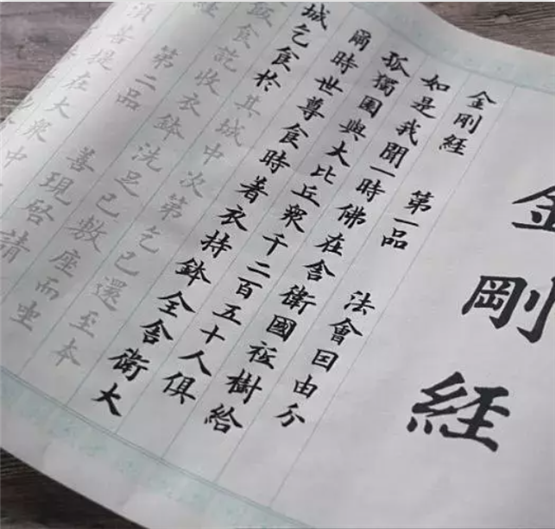 金剛經
金剛經 第一品 法會因由分
如是我聞一時佛在舍衛國祇樹給
孤獨園與大比丘衆千二百五十人俱
爾時世尊食時著衣持鉢全舍衛大
城乞食於其城中次第乞已還至本
飯食訖收衣鉢洗足已敷座而坐
經 第二品 善現啓請
須菩提在大衆中